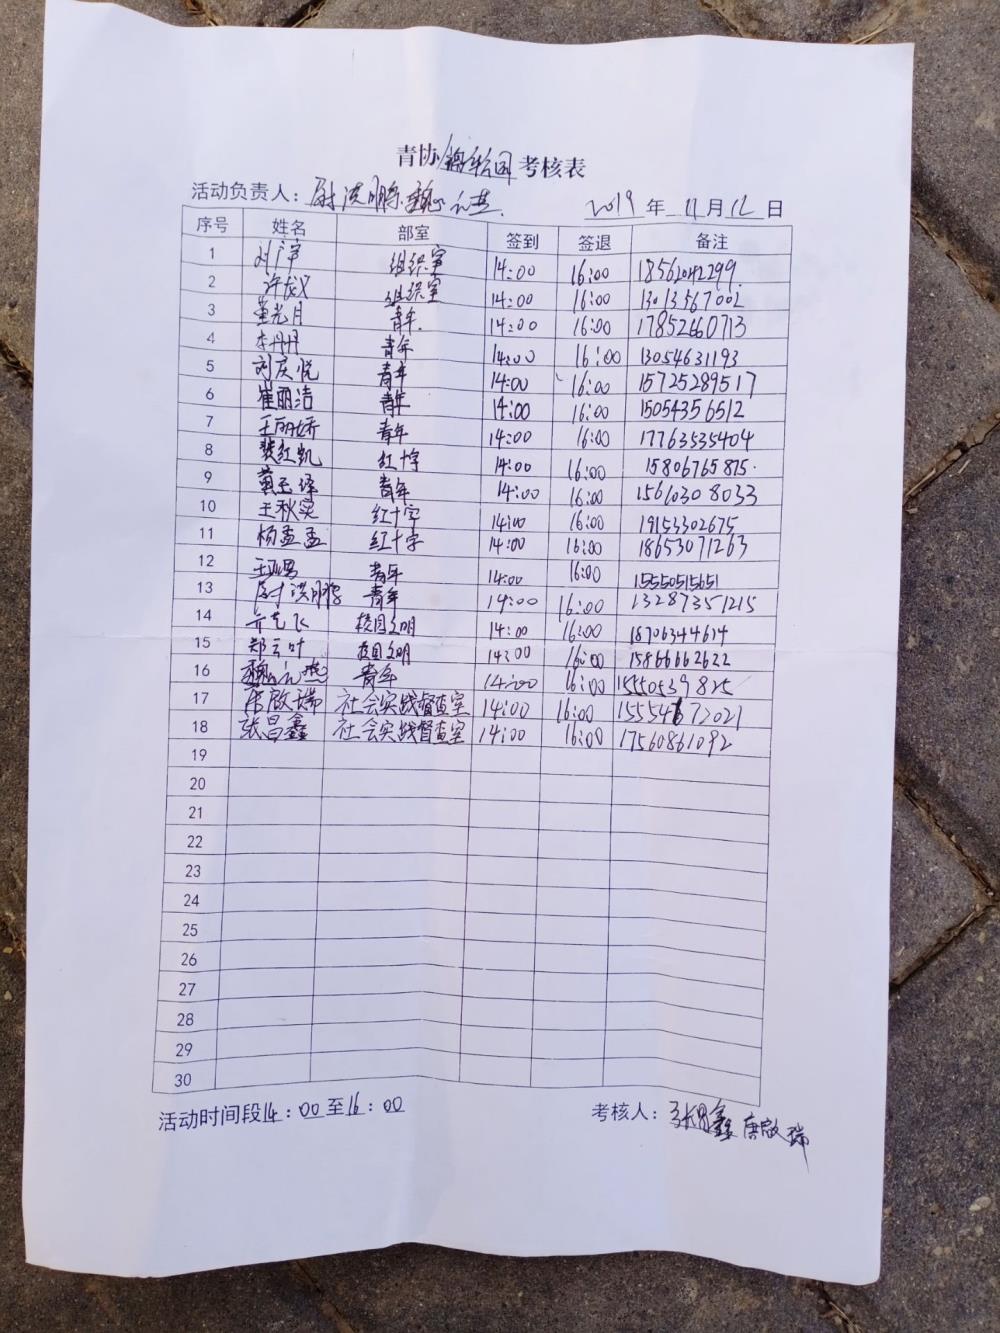 青协 考核表
活动负责人：尉洪鹏 魏元燕
2019 年 11 月 12 日
序号 姓名 部室 签到 签退 备注
1 组织室 14:00 16:00 18562042299
2 许龙义 组织室 14:00 16:00 13013567002
3 董光月 青年 14:00 16:00 17852660713
4 李丹丹 青年 14:00 16:00 13054631193
5 刘庆悦 青年 14:00 16:00 15725289517
6 崔丽洁 青年 14:00 16:00 15054356512
7 王丽娇 青年 14:00 16:00 17763535404
8 裴红凯 红十字 14:00 16:00 15806765875
9 黄玉泽 青年 14:00 16:00 15610308033
10 王秋实 红十字 14:00 16:00 19153302675
11 杨孟孟 红十字 14:00 16:00 18653071263
12 青年 14:00 16:00 15550515651
13 尉洪鹏 青年 14:00 16:00 13287351215
14 齐艺飞 校园文明 14:00 16:00 18706344614
15 郑云叶 校园文明 14:00 16:00 15866662622
16 魏元燕 青年 14:00 16:00 15550539825
17 唐啟瑞 社会实践督查室 14:00 16:00 15554672021
18 张昌鑫 社会实践督查室 14:00 16:00 17560861092
19
20
21
22
23
24
25
26
27
28
29
30
活动时间段14：00至16：00
考核人：张昌鑫 唐啟瑞